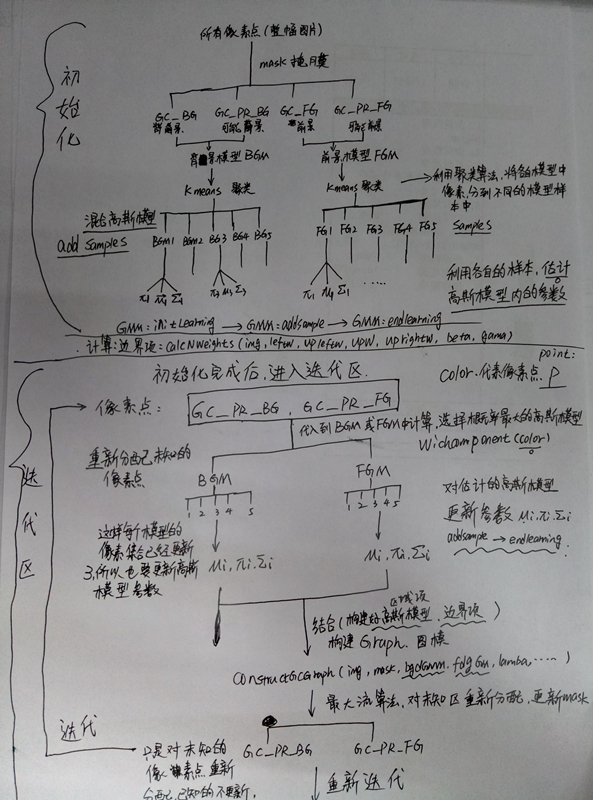 所有像素点(整幅图片)
mask 掩膜
初始化
GC_BG GC_PR_BG GC_FG GC_PR_FG
背景 可能背景 前景 可能前景
背景模型BGM 前景模型FGM
Kmeans 聚类 Kmeans 聚类
利用聚类算法,将各自模型中
像素,分到不同的模型样
本中
混合高斯模型
add samples BGM1 BGM2 BG3 BG4 BG5 FG1 FG2 FG3 FG4 FG5 samples
π1 μ1 Σ1 π3 μ3 Σ3 π1 μ1 Σ1 .....
利用各自的样本,估计
高斯模型内的参数
GMM:initLearning → GMM:addsample → GMM:endlearning
计算:边界项:calcNWeights(img, leftw, upleftw, upw, uprightw, beta, gama)
初始化完成后,进入迭代区.
point:
color.代表像素点 P
像素点: GC_PR_BG , GC_PR_FG
代入到BGM或FGM中计算,选择概率最大的高斯模型
Wichcomponent(color)
迭代区
重新分配已未知的
像素点
BGM FGM
1 2 3 4 5 1 2 3 4 5
对估计的高斯模型
更新参数 μi.πi.Σi
addsample → endlearning
这样每个模型的
像素集合已经更新
了,所以也要更新高斯
模型参数
μi.πi.Σi μi.πi.Σi
区域项
结合(构建好高斯模型、边界项)
构建Graph.图模
ConstructGCGraph(img, mask, bgdGmm, fdgGm, lamba, .....)
最大流算法,对未知区重新分配,更新mask
迭代
只是对未知的
像素点重新
分配,已知的不更新.
GC_PR_BG GC_PR_FG
重新迭代